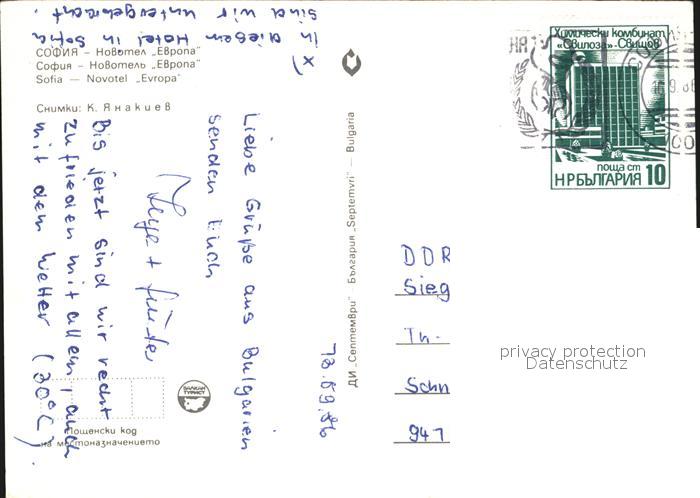 x)
in diesem Hotel in Sofia
sind wir untergebracht.
СОФИЯ – Новотел „Европа"
София – Новотель „Европа"
Sofia – Novotel „Evropa"
Снимки: К. Янакиев
Liebe Grüße aus Bulgarien
senden Euch
Bis jetzt sind wir recht
zufrieden mit allem, auch
mit dem Wetter (30°C).
Пощенски код
на местоназначението
БАЛКАН
ТУРИСТ
ДИ „Септември" България „Septemvri" — Bulgaria
Химически комбинат
„Свилоза"-Свищов
поща ст
НРБЪЛГАРИЯ 10
DDR
Sieg
Th-
Schn
941
privacy protection
Datenschutz